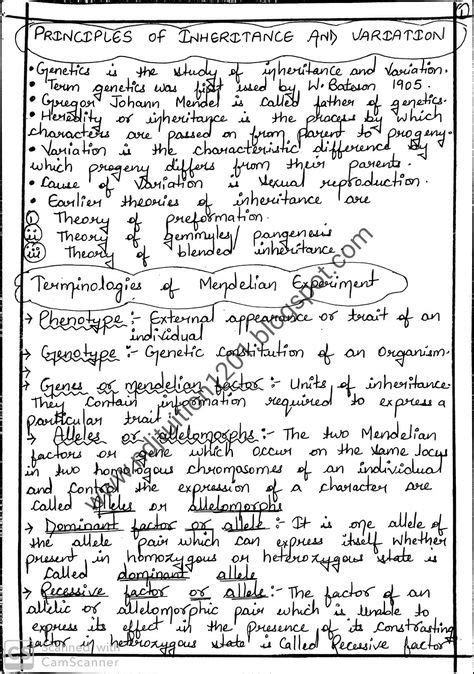 1
PRINCIPLES OF INHERITANCE AND VARIATION
• Genetics is the study of inheritance and Variation.
• Term genetics was first used by W. Bateson 1905.
• Gregor Johann Mendel is called father of genetics.
• Heredity or inheritance is the process by which
characters are passed on from parent to progeny.
• Variation is the characteristic difference by
which progeny differs from their parents.
• Cause of Variation is sexual reproduction.
• Earlier theories of inheritance are
i Theory of preformation.
ii Theory of gemmules/ pangenesis
iii Theory of blended inheritance
Terminologies of Mendelian Experiment
→ Phenotype :- External appearance or trait of an
individual
→ Genotype :- Genetic constitution of an Organism.
→ Genes or mendelian factor :- Units of inheritance.
They contain information required to express a
particular trait
→ Alleles or allelomorphs :- The two Mendelian
factors or gene which occur on the same locus
in two homologous chromosomes of an individual
and control the expression of a character are
called alleles or allelomorphs
→ Dominant factor or allele :- It is one allele of
the allele pair which can express itself whether
present in homozygous or heterozygous state is
Called dominant allele
→ Recessive factor or allele :- The factor of an
allelic or allelomorphic pair which is unable to
express its effect in the presence of its constrasting
factor in heterozygous state is Called Recessive factor
CS Scanned with
CamScanner